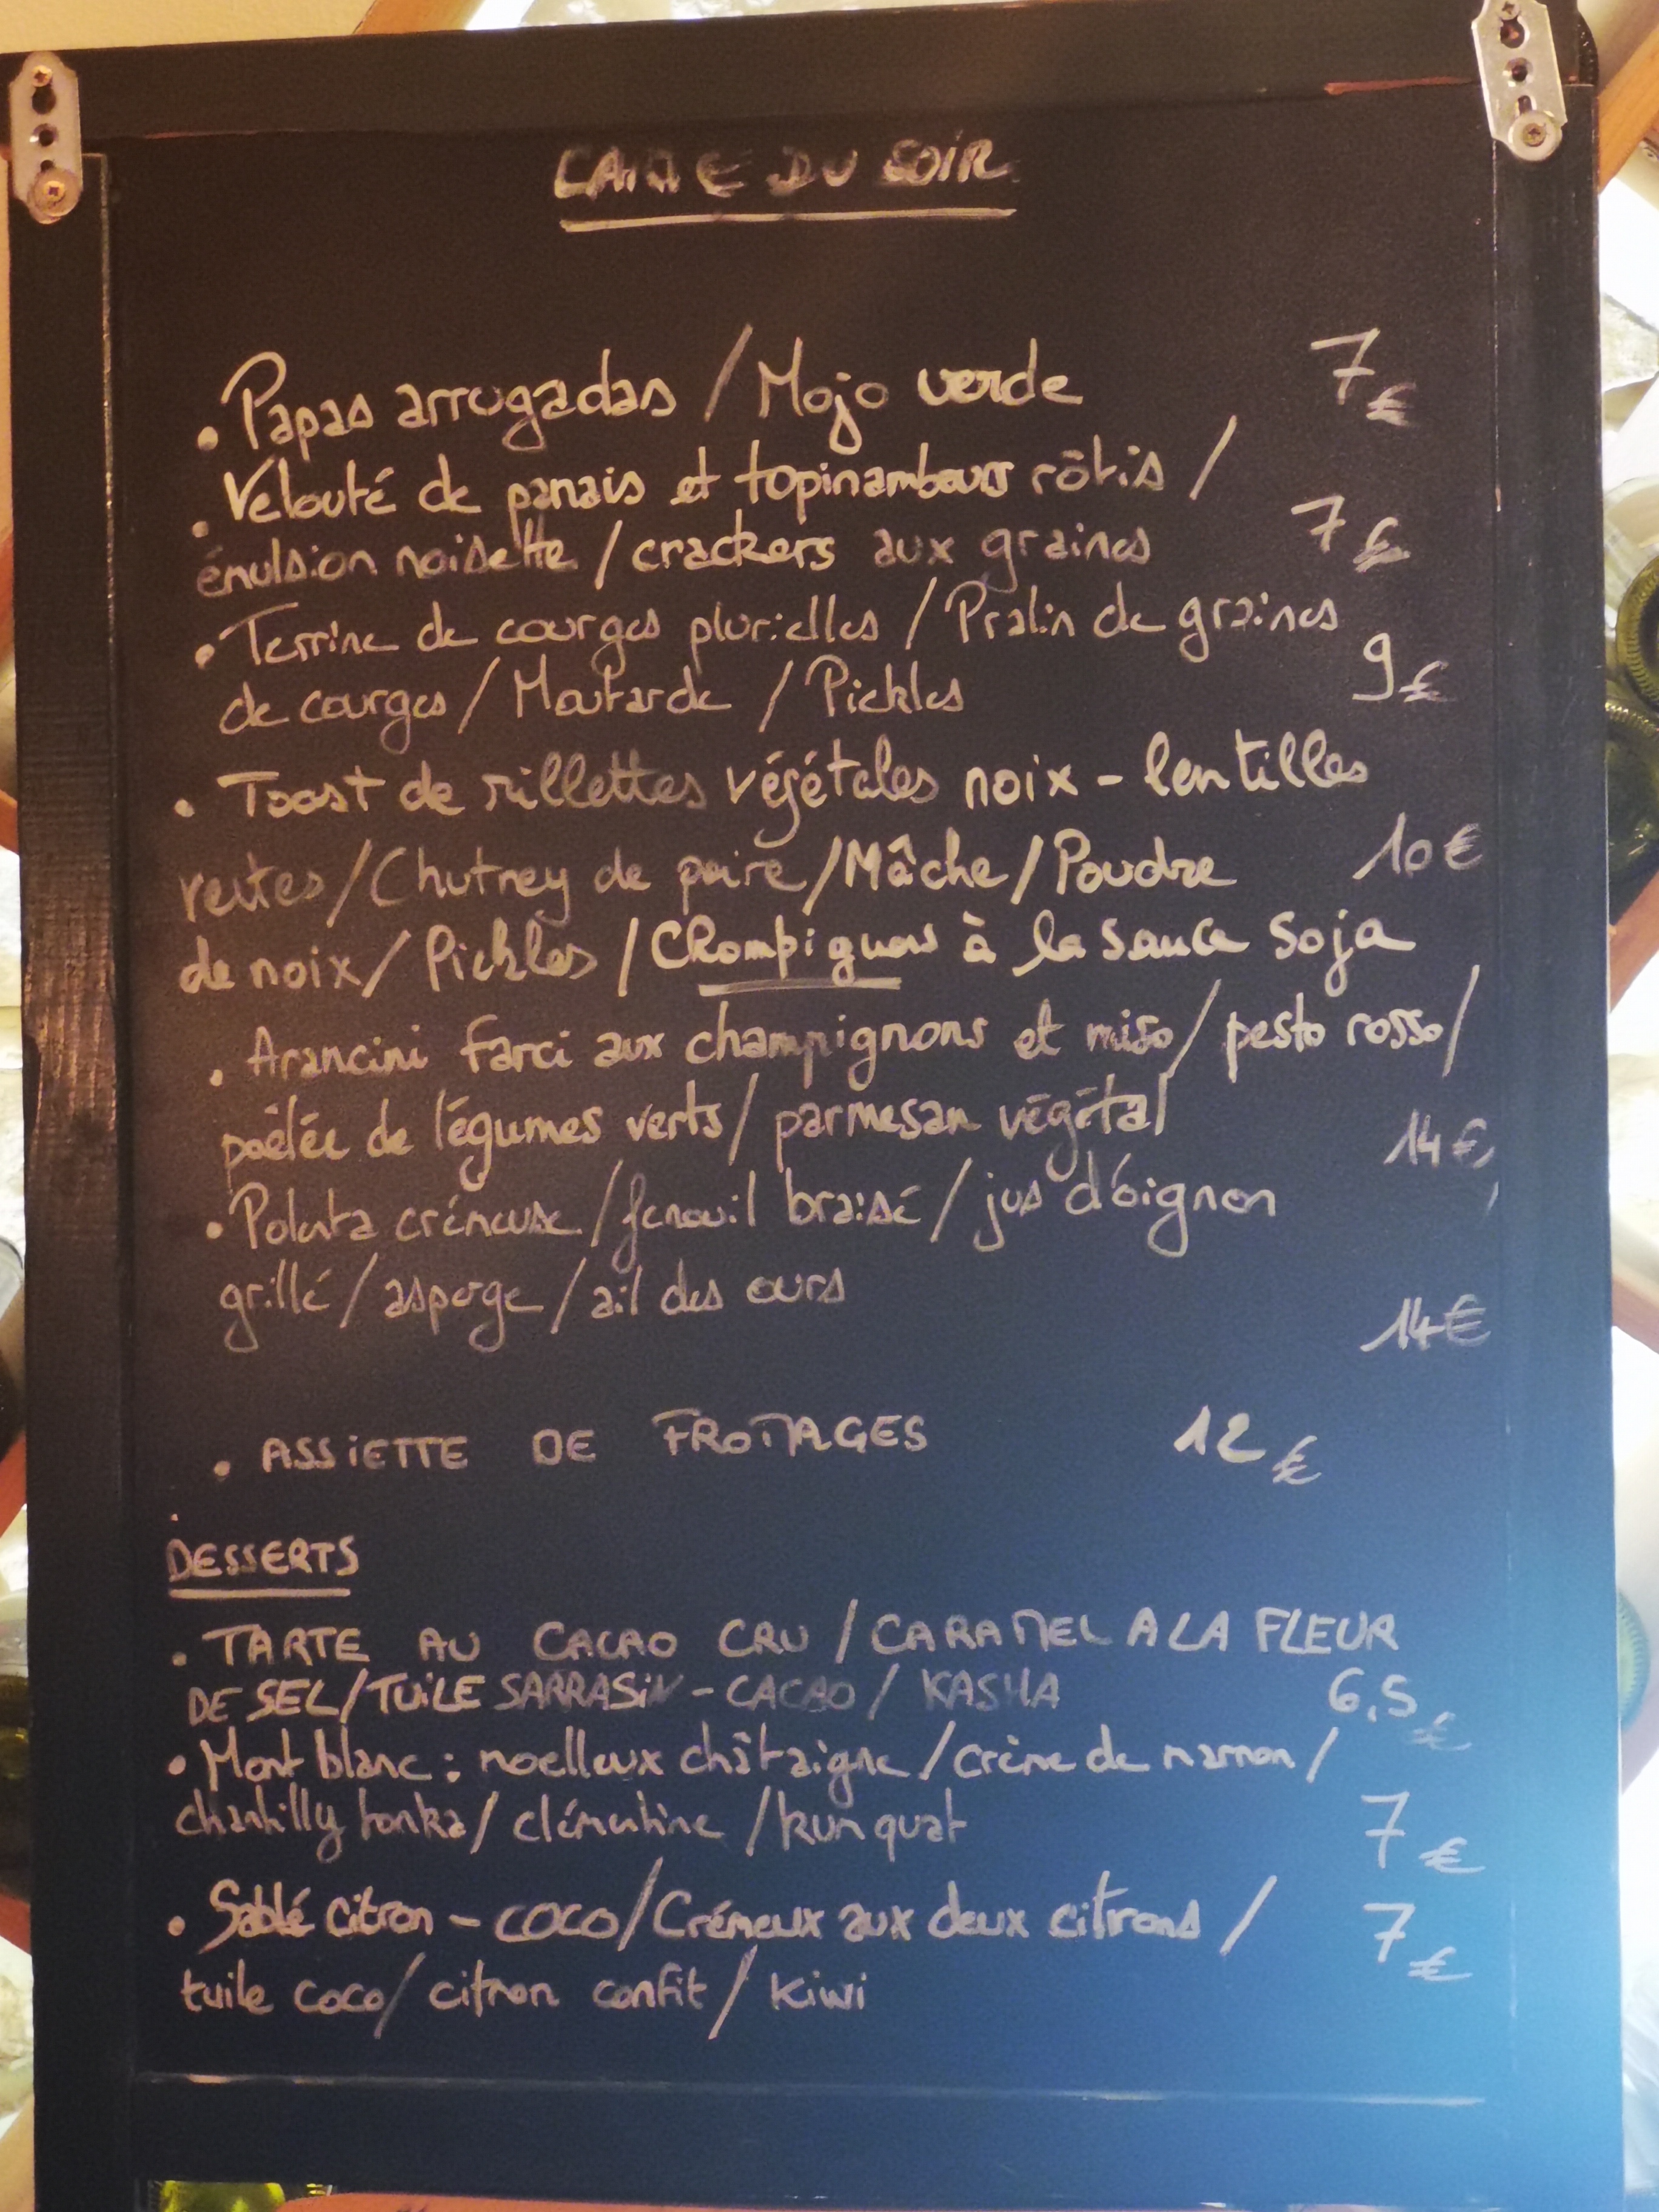 CARTE DU SOIR
• Papas arrugadas / Mojo verde 7€
• Velouté de panais et topinambours rôtis /
émulsion noisette / crackers aux graines 7€
• Terrine de courges plurielles / Pralin de graines
de courges / Moutarde / Pickles 9€
• Toast de rillettes végétales noix - lentilles
vertes / Chutney de poire / Mâche / Poudre 10€
de noix / Pickles / Champignons à la sauce soja
• Arancini farci aux champignons et miso / pesto rosso /
poêlée de légumes verts / parmesan végétal 14€
• Polenta crémeuse / fenouil braisé / jus d'oignon
grillé / asperge / ail des ours 14€
• ASSIETTE DE FROMAGES 12€
DESSERTS
• TARTE AU CACAO CRU / CARAMEL A LA FLEUR
DE SEL / TUILE SARRASIN - CACAO / KASHA 6,5€
• Mont blanc : moelleux châtaigne / crème de marron /
chantilly tonka / clémentine / kumquat 7€
• Sablé citron - coco / Crémeux aux deux citrons / 7€
tuile coco / citron confit / kiwi